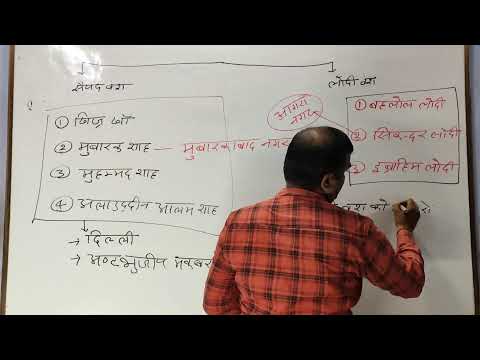 सैयद वंश
लोदी वंश
① खिज्र खाँ
② मुबारक शाह — मुबारकाबाद नगर
③ मुहम्मद शाह
④ अलाउद्दीन आलम शाह
→ दिल्ली
→ अष्टभुजीय मकबर
आगरा नगर
① बहलोल लोदी
② सिकन्दर लोदी
③ इब्राहिम लोदी
को